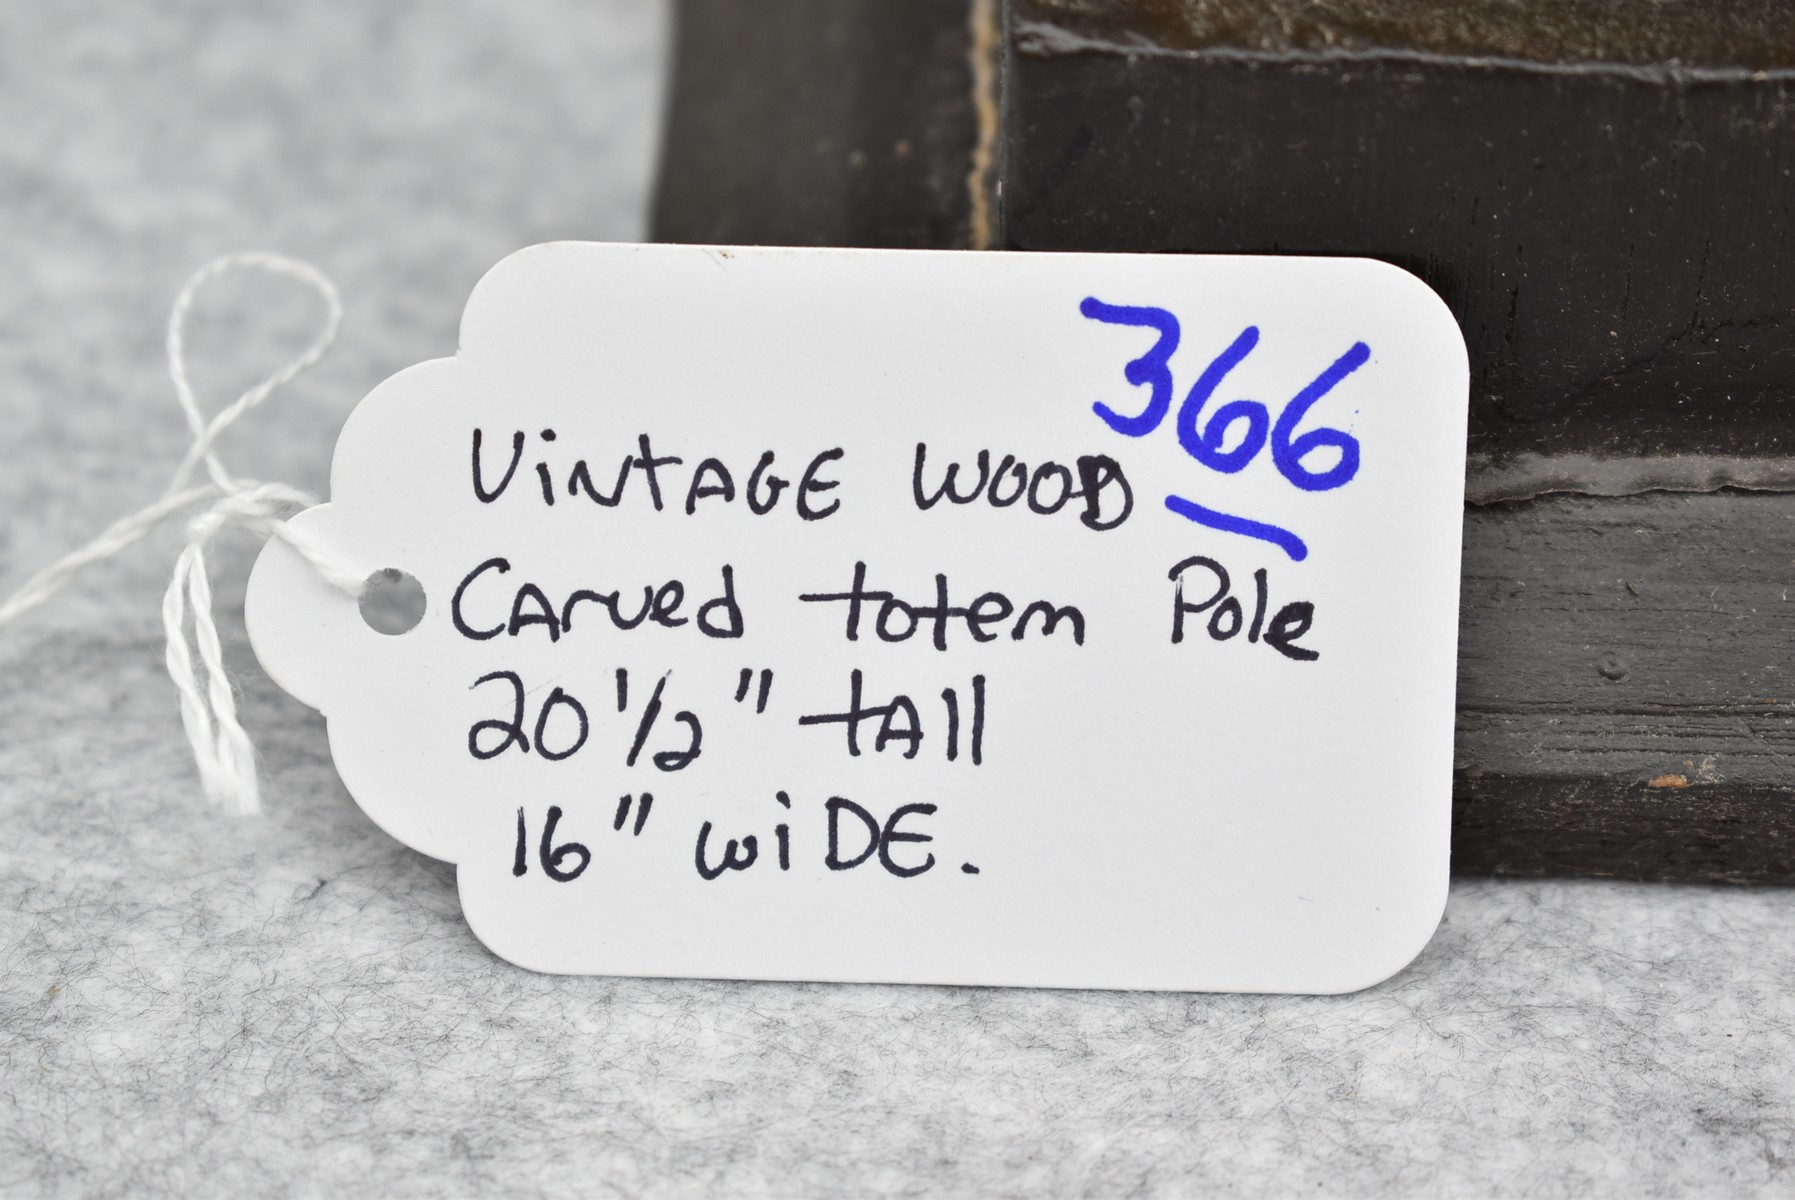 366
ViNtAGE WOOD
CArved totem Pole
20 1/2" tAll
16" wiDE.